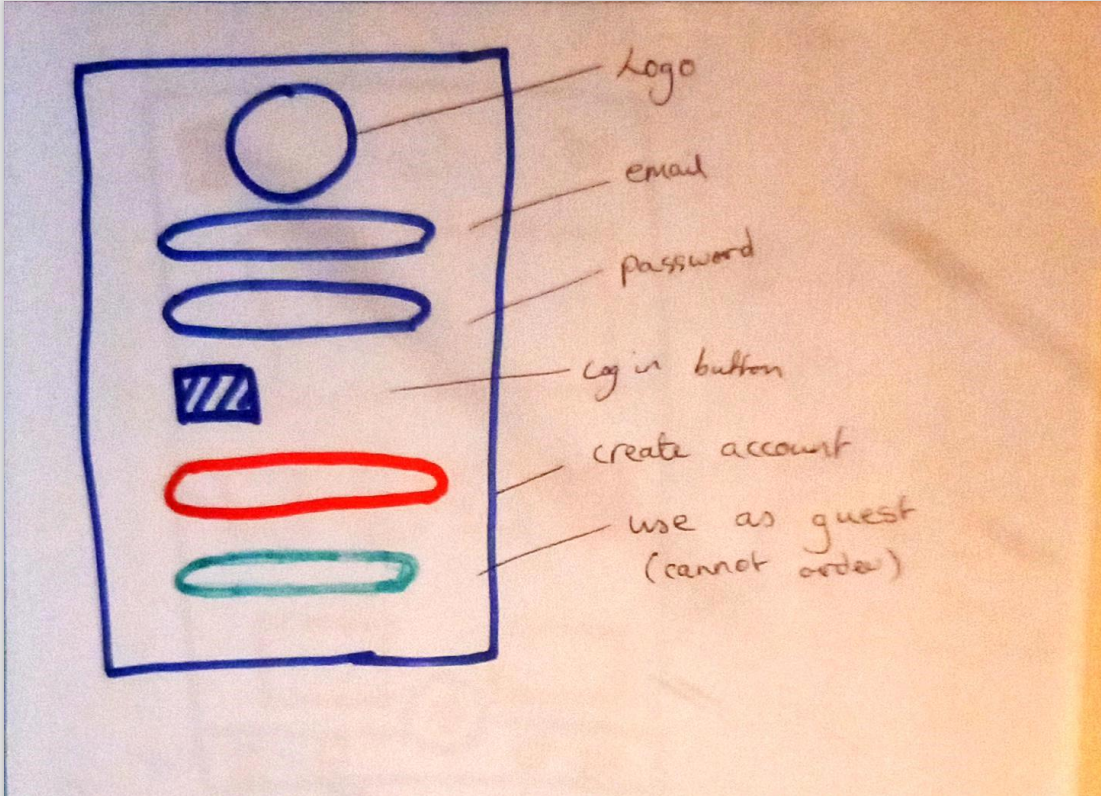 Logo
email
password
Log in button
create account
use as guest
(cannot order)